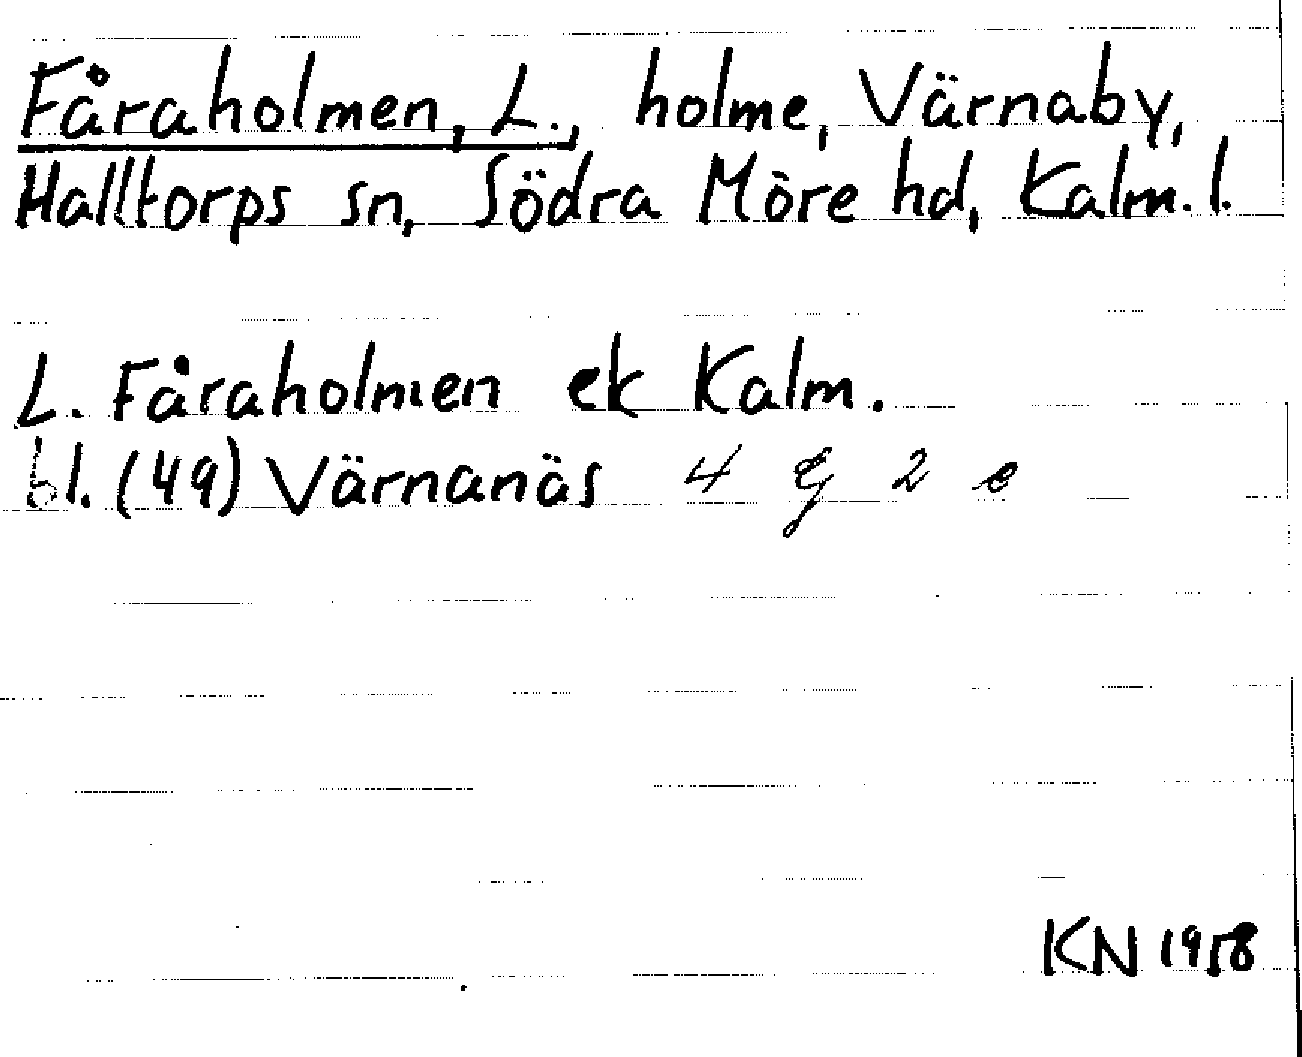 Fåraholmen, L., holme, Värnaby,
Halltorps sn, Södra Möre hd, Kalm. l.
L. Fåraholmen ek Kalm.
bl. (49) Värnanäs 4 G 2 e
KN 1958